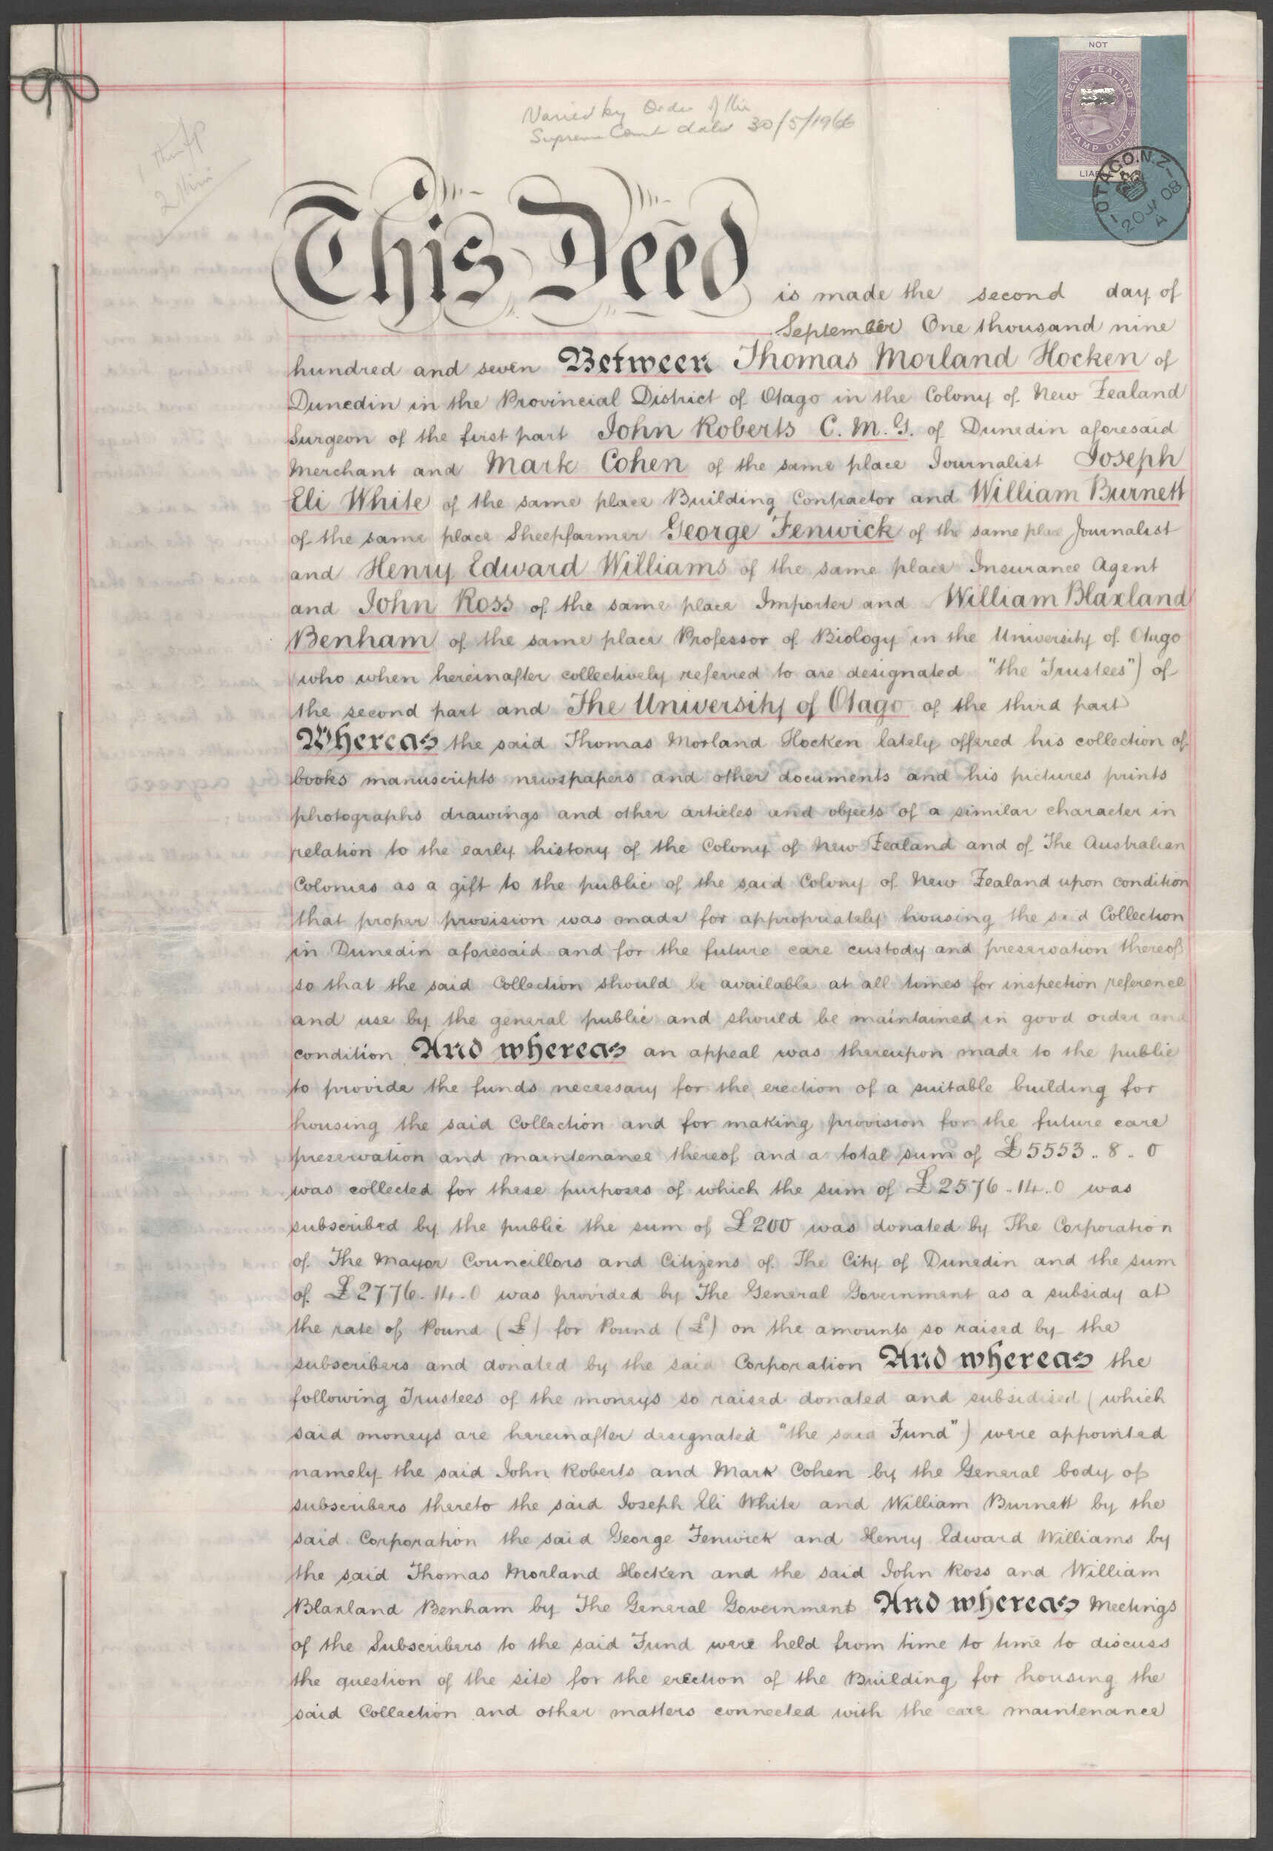 NOT
NEW ZEALAND
STAMP DUTY
LIA
OTAGO. N.Z
20 JA 08
A
Varied by Order of the
Supreme Court dated 30/5/1966
This Deed is made the second day of
September One thousand nine
hundred and seven Between Thomas Morland Hocken of
Dunedin in the Provincial District of Otago in the Colony of New Zealand
Surgeon of the first part John Roberts C. M. G. of Dunedin aforesaid
Merchant and Mark Cohen of the same place Journalist Joseph
Eli White of the same place Building Contractor and William Burnett
of the same place Sheepfarmer George Fenwick of the same place Journalist
and Henry Edward Williams of the same place Insurance Agent
and John Ross of the same place Importer and William Blaxland
Benham of the same place Professor of Biology in the University of Otago
(who when hereinafter collectively referred to are designated "the Trustees") of
the second part and The University of Otago of the third part
Whereas the said Thomas Morland Hocken lately offered his collection of
books manuscripts newspapers and other documents and his pictures prints
photographs drawings and other articles and objects of a similar character in
relation to the early history of the Colony of New Zealand and of The Australian
Colonies as a gift to the public of the said Colony of New Zealand upon condition
that proper provision was made for appropriately housing the said Collection
in Dunedin aforesaid and for the future care custody and preservation thereof
so that the said Collection should be available at all times for inspection reference
and use by the general public and should be maintained in good order and
condition And whereas an appeal was thereupon made to the public
to provide the funds necessary for the erection of a suitable building for
housing the said Collection and for making provision for the future care
preservation and maintenance thereof and a total sum of £5553 .. 8 .. 0
was collected for these purposes of which the sum of £2576 .. 14 .. 0 was
subscribed by the public the sum of £200 was donated by The Corporation
of The Mayor Councillors and Citizens of The City of Dunedin and the sum
of £2776 .. 14 .. 0 was provided by The General Government as a subsidy at
the rate of Pound (£) for Pound (£) on the amounts so raised by the
subscribers and donated by the said Corporation And whereas the
following Trustees of the moneys so raised donated and subsidised (which
said moneys are hereinafter designated "the said Fund") were appointed
namely the said John Roberts and Mark Cohen by the General body of
subscribers thereto the said Joseph Eli White and William Burnett by the
said Corporation the said George Fenwick and Henry Edward Williams by
the said Thomas Morland Hocken and the said John Ross and William
Blaxland Benham by The General Government And whereas Meetings
of the Subscribers to the said Fund were held from time to time to discuss
the question of the site for the erection of the Building for housing the
said Collection and other matters connected with the care maintenance